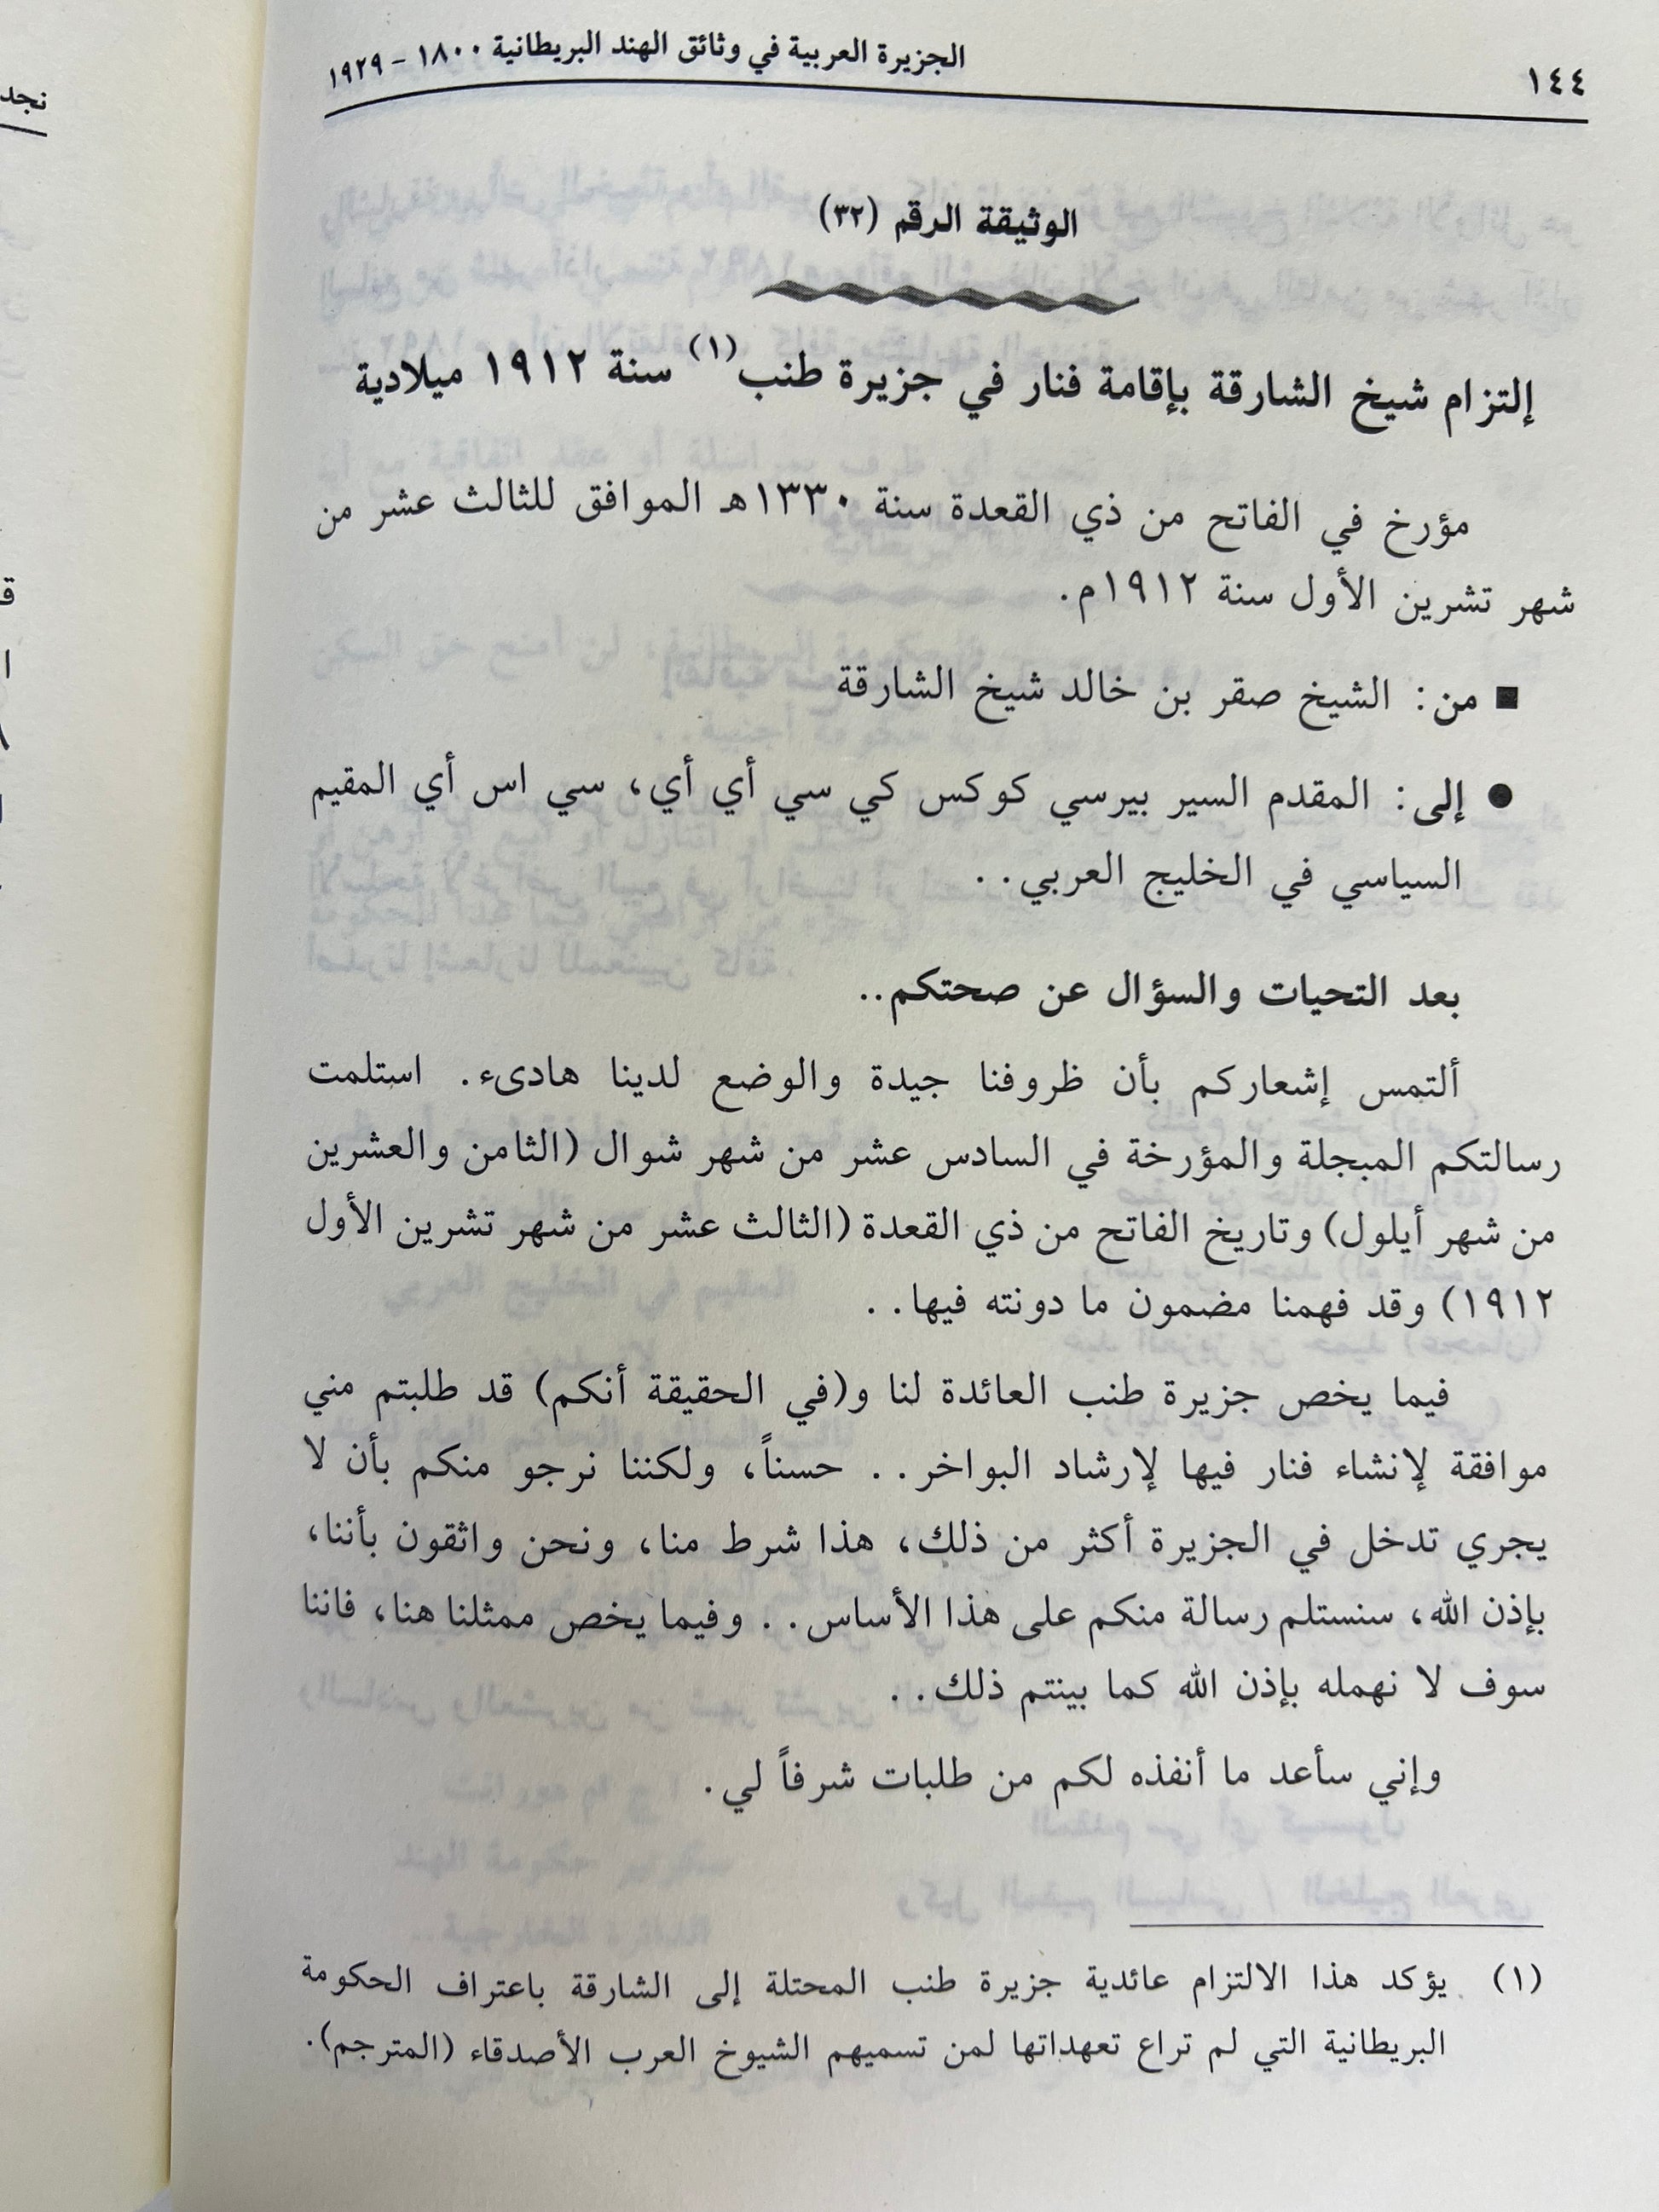 ١٤٤
الجزيرة العربية في وثائق الهند البريطانية ١٨٠٠ - ١٩٢٩
نجد
الوثيقة الرقم (٣٢)
إلتزام شيخ الشارقة بإقامة فنار في جزيرة طنب(١) سنة ١٩١٢ ميلادية
مؤرخ في الفاتح من ذي القعدة سنة ١٣٣٠هـ الموافق للثالث عشر من
شهر تشرين الأول سنة ١٩١٢م.
■ من: الشيخ صقر بن خالد شيخ الشارقة
● إلى: المقدم السير بيرسي كوكس كي سي أي أي، سي اس أي المقيم
السياسي في الخليج العربي..
بعد التحيات والسؤال عن صحتكم..
ألتمس إشعاركم بأن ظروفنا جيدة والوضع لدينا هادىء. استلمت
رسالتكم المبجلة والمؤرخة في السادس عشر من شهر شوال (الثامن والعشرين
من شهر أيلول) وتاريخ الفاتح من ذي القعدة (الثالث عشر من شهر تشرين الأول
١٩١٢) وقد فهمنا مضمون ما دونته فيها..
فيما يخص جزيرة طنب العائدة لنا و(في الحقيقة أنكم) قد طلبتم مني
موافقة لإنشاء فنار فيها لإرشاد البواخر.. حسناً، ولكننا نرجو منكم بأن لا
يجري تدخل في الجزيرة أكثر من ذلك، هذا شرط منا، ونحن واثقون بأننا،
بإذن الله، سنستلم رسالة منكم على هذا الأساس.. وفيما يخص ممثلنا هنا، فاننا
سوف لا نهمله بإذن الله كما بينتم ذلك..
وإني سأعد ما أنفذه لكم من طلبات شرفاً لي.
(١) يؤكد هذا الالتزام عائدية جزيرة طنب المحتلة إلى الشارقة باعتراف الحكومة
البريطانية التي لم تراع تعهداتها لمن تسميهم الشيوخ العرب الأصدقاء (المترجم).